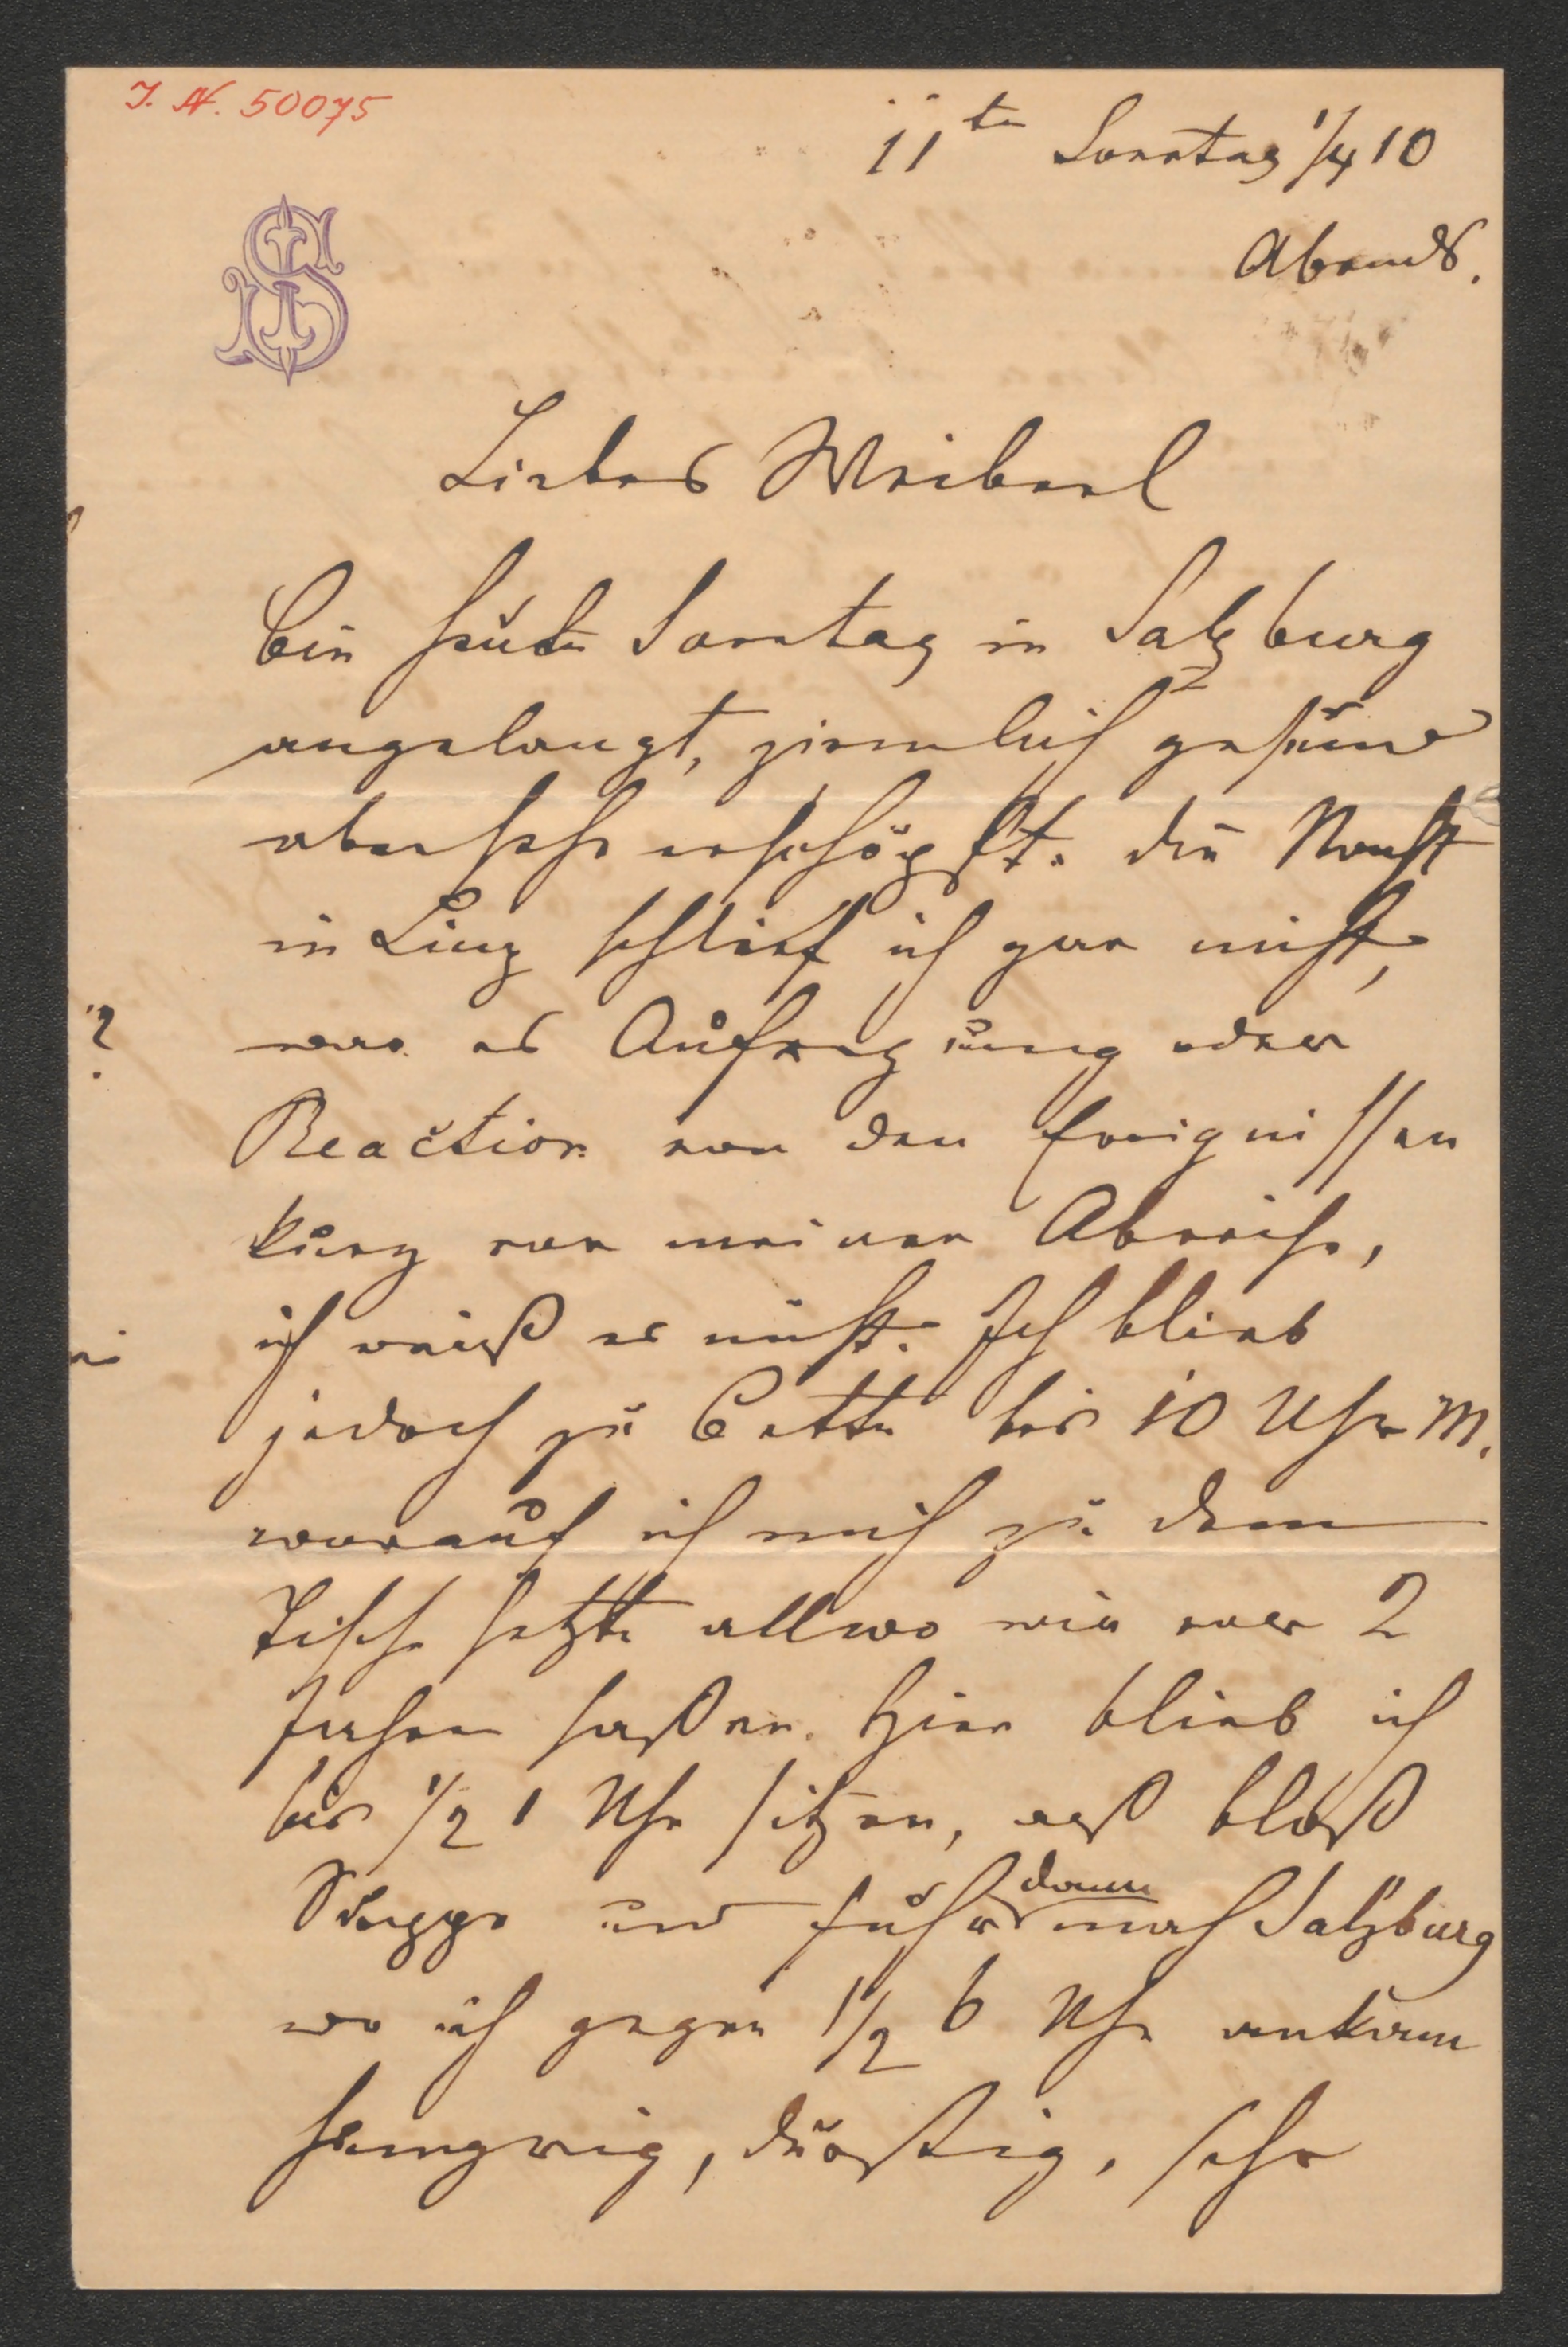 I. N. 50075
11te Sonntag 1/4 10
Abends.
JS
Liebes Weiberl
Bin heute Sonntag in Salzburg
angelangt, ziemlich gesund
aber sehr erschöpft. Die Nacht
in Linz schlief ich gar nicht,
war es Aufregung oder
Reaction von den Ereignissen
kurz vor meiner Abreise,
ich weiß es nicht. Ich blieb
jedoch zu Bette bis 10 Uhr M.
worauf ich mich zu dem
Tische setzte allwo wir vor 2
Jahren saßen. Hier blieb ich
bis 1/2 1 Uhr sitzen, aß bloß
Suppe und fuhr dann nach Salzburg
wo ich gegen 1/2 6 Uhr ankam
hungrig, durstig, sehr